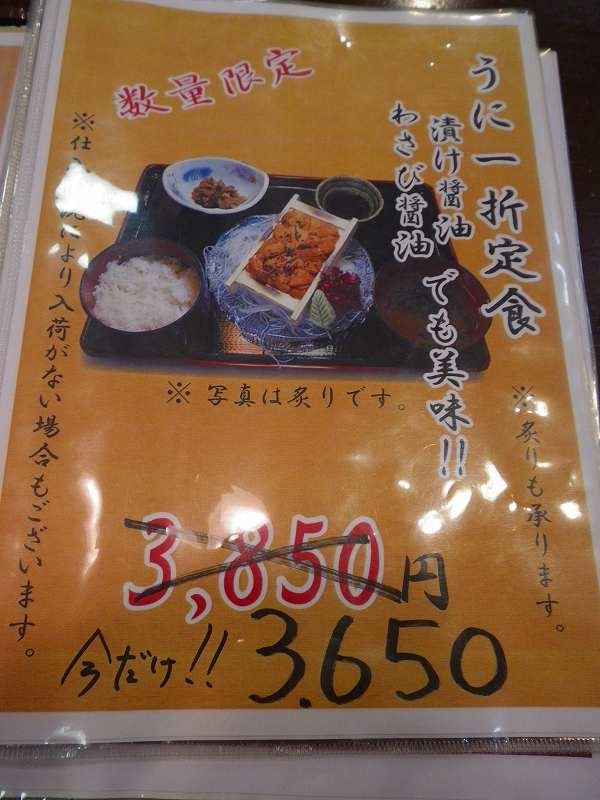 うに一折定食
漬け醤油
わさび醤油
でも美味!!
数量限定
※炙りも承ります。
※仕入 況により入荷がない場合もございます。
※ 写真は炙りです。
3,850円
今だけ!! 3.650